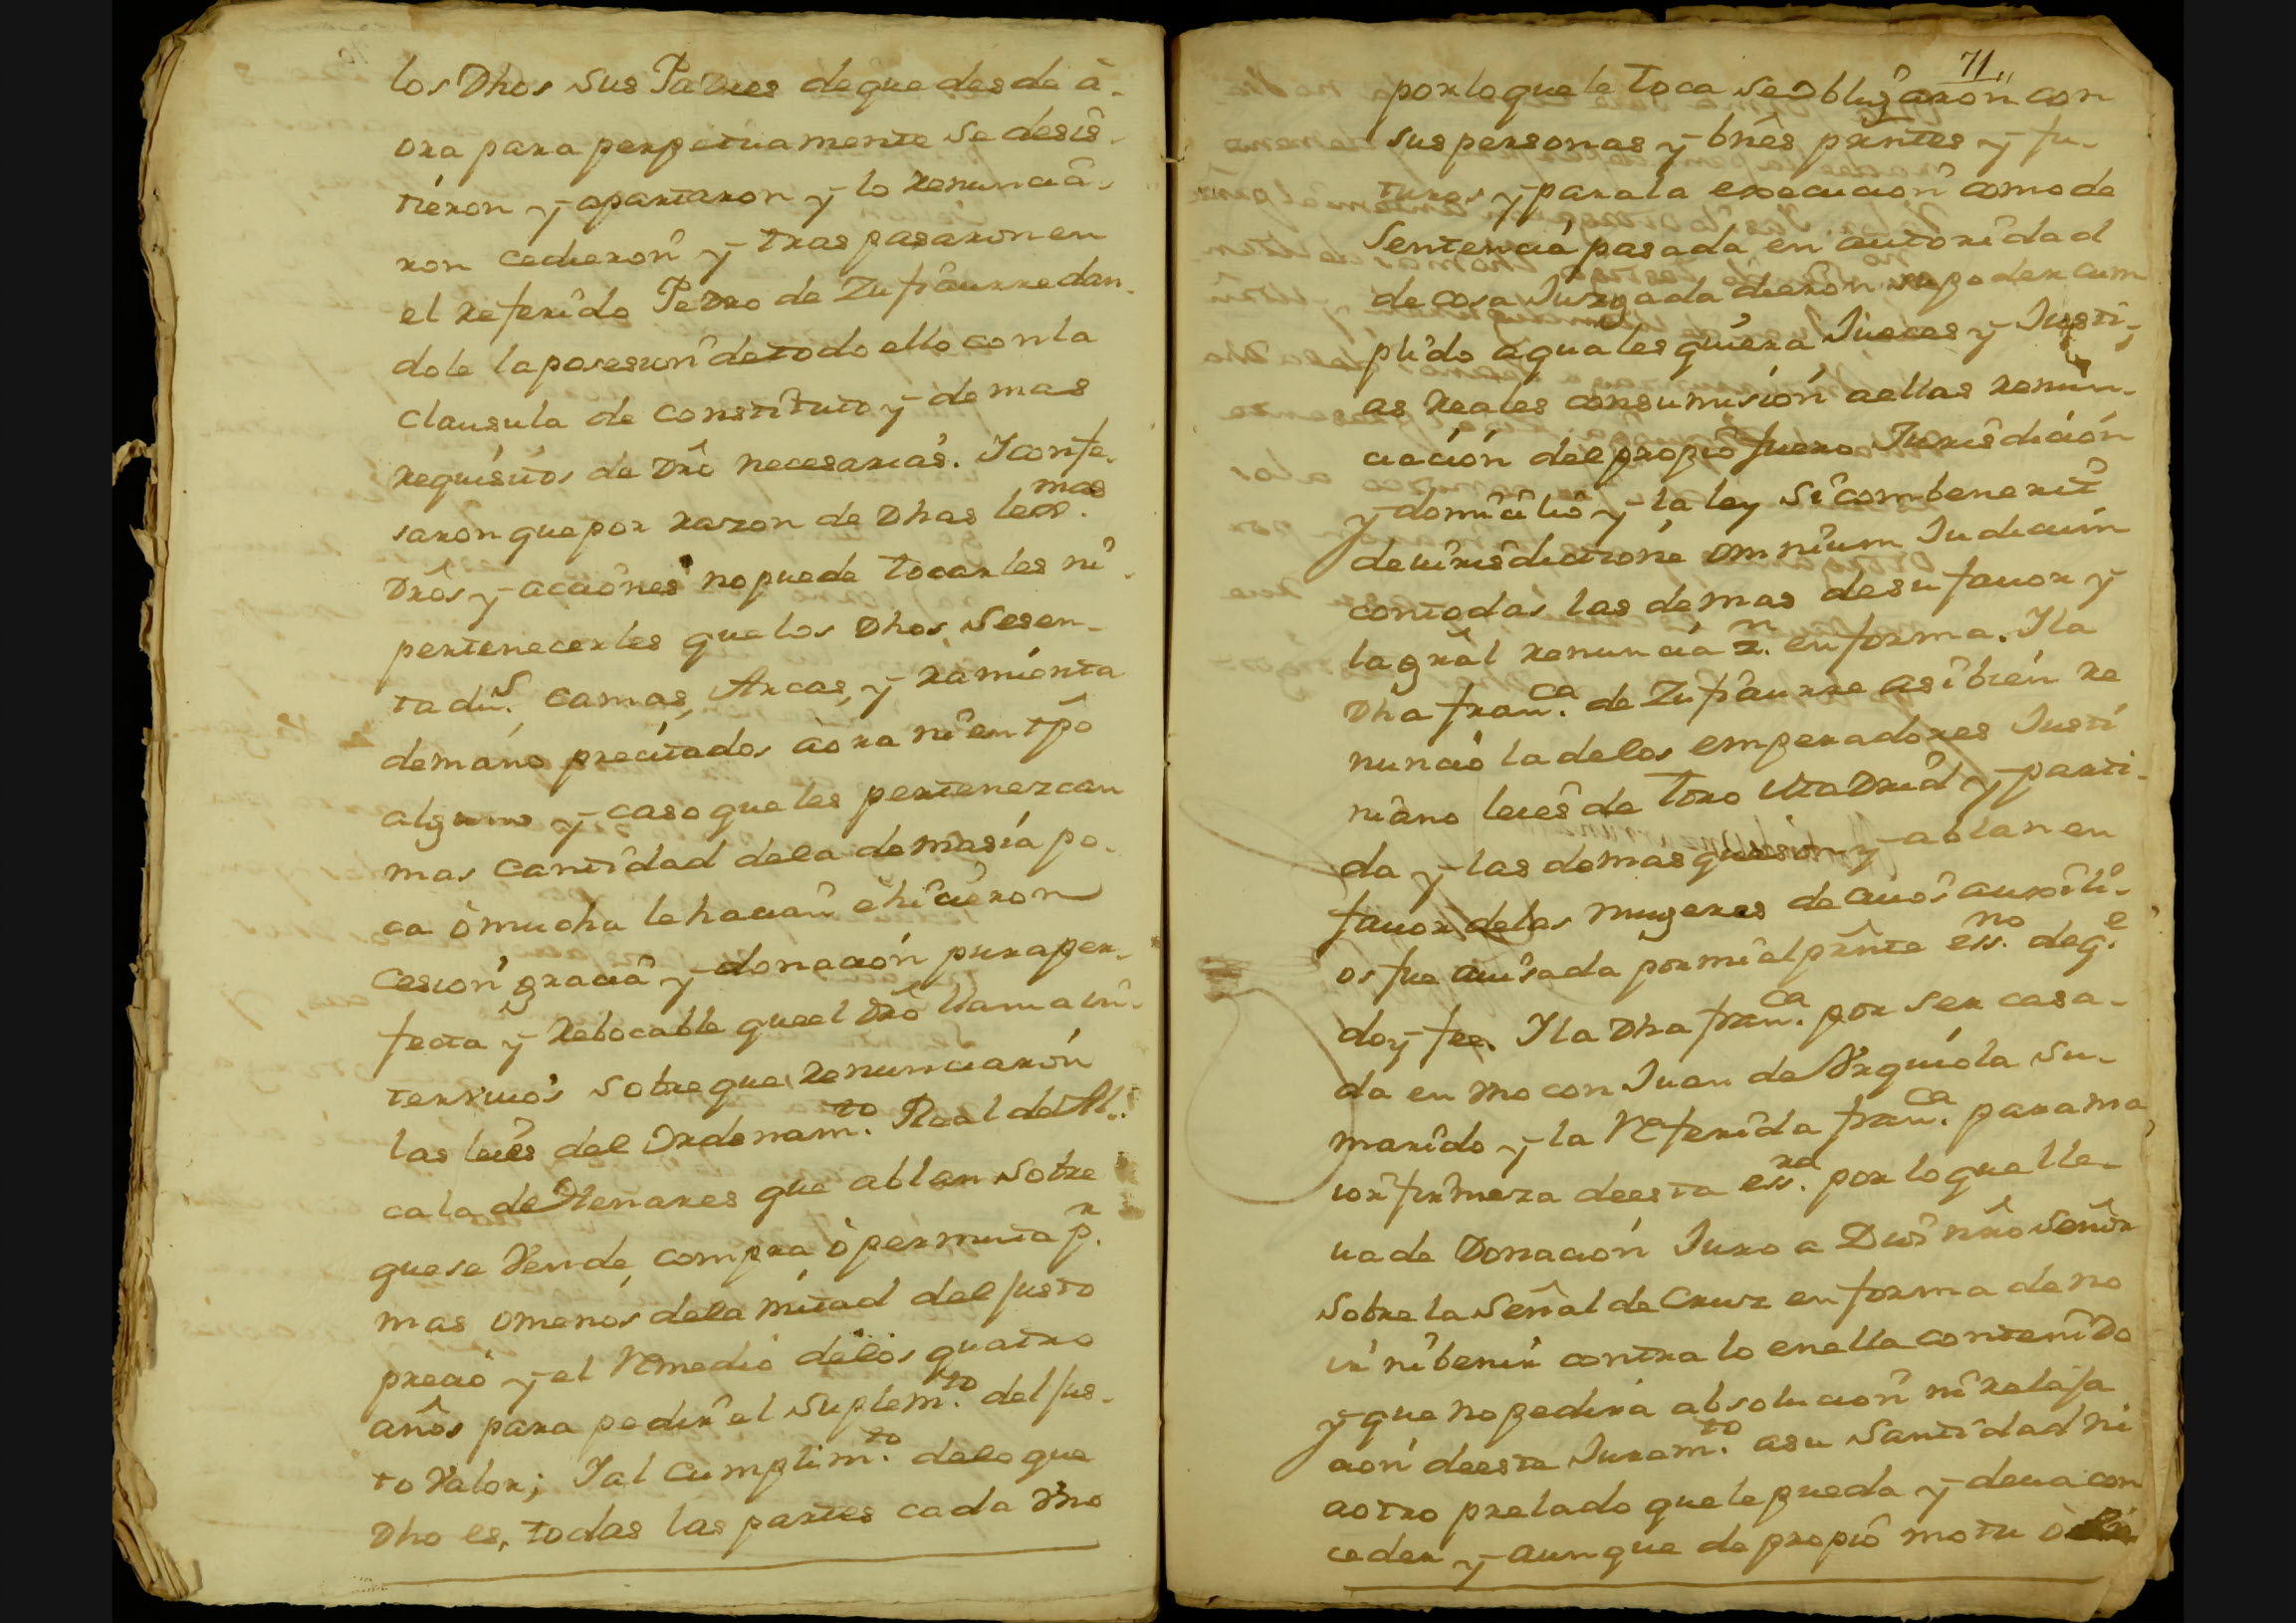 los Dhos sus Padres de que desde â-
ora para perpetuamente se desis-
tieron y apartaron y lo renuncia-
ron cedieron y traspasaron en
el referido Pedro de Zufiaurre dan-
dole la posesion de todo ello con la
clausula de constituto y demas
requisitos de drô necesarias. Y confe-
saron que por razon de Dhas lexmas.
Drôs y acciones no puede tocarles ni
pertenecerles que los Dhos Sesen-
ta dus. camas, Arcas, y ramienta
de mano precitados aora ni en tpô
alguno y caso que les pertenezcan
mas cantidad dela demasia po-
ca ò mucha le hacian è hicieron
cesion gracia y donacion pura per-
fecta y Rebocable que el drô llama in-
terviuos sobre que renunciaron
las leies del Ordenamto. Real de Al-
cala de Henares que ablan sobre
que se Vende, compra ò permuta pr.
mas o menos dela mitad del justo
precio y el Remedio delos quatro
años para pedir el suplemto. del jus-
to Valor; Y al cumplimto. delo que
Dho es, todas las partes cada Vno
71,,
por lo que le toca se obligaron con
sus personas y bnês prêntes y fu-
turos y para la execucion como de
Sentencia pasada en autoridad
de cosa Juzgada dieron su poder cum
plido a qualesquiera Jueces y Justi-
as Reales con sumision a ellas renun-
ciacion del propio fuero Jurisdicion
y domicilio y la ley si combenerit
de iurisdictione omnium Judicum
con todas las demas de su fauor y
la grâl renunciazn. en forma. Y la
Dha franca. de Zufiaurre asi bien re
nuncio la delos emperadores Justi
niano leies de Toro Madrid y parti-
da y las demas que son y ablan en
fauor delas mugeres de cuios auxili-
os fue auisada por mi el prênte essno. deqe.
doy fee. Y la Dha franca. por ser casa-
da en mo con Juan de Vrquiola su
marido y la Referida franca. para ma
ior firmeza de esta essra. por lo que lle-
ua de Donacion Juro a Dios nrô señor
sobre la señal de Cruz en forma de no
ir ni benir contra lo en ella contenido
y que no pedira absolucion ni relaja
cion de este Juramto. a su Santidad ni
a otro prelado que le pueda y deua con
ceder y aunque de propio motu ò